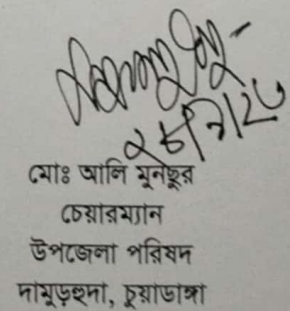 মোঃ আলি মুনছুর
চেয়ারম্যান
উপজেলা পরিষদ
দামুড়হুদা, চুয়াডাঙ্গা